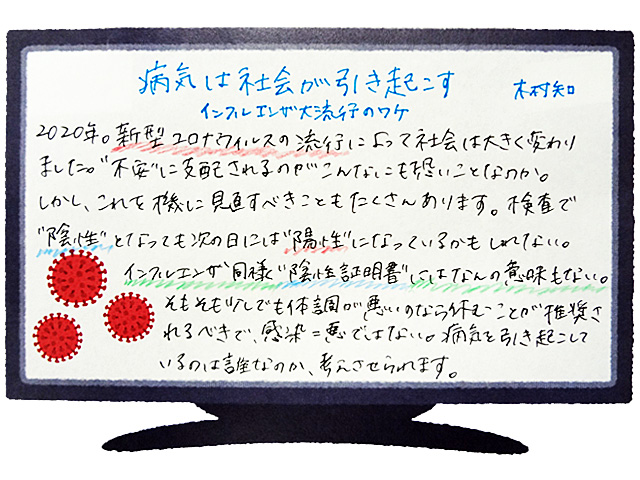 病気は社会が引き起こす
木村知
インフルエンザ大流行のワケ
2020年。新型コロナウィルスの流行によって社会は大きく変わり
ました。"不安"に支配されるのがこんなにも恐いことなのか。
しかし、これを機に見直すべきこともたくさんあります。検査で
"陰性"となっても次の日には"陽性"になっているかもしれない。
インフルエンザ同様"陰性証明書"にはなんの意味もない。
そもそも少しでも体調が悪いのなら休むことが推奨さ
れるべきで、感染=悪ではない。病気を引き起こして
いるのは誰なのか、考えさせられます。